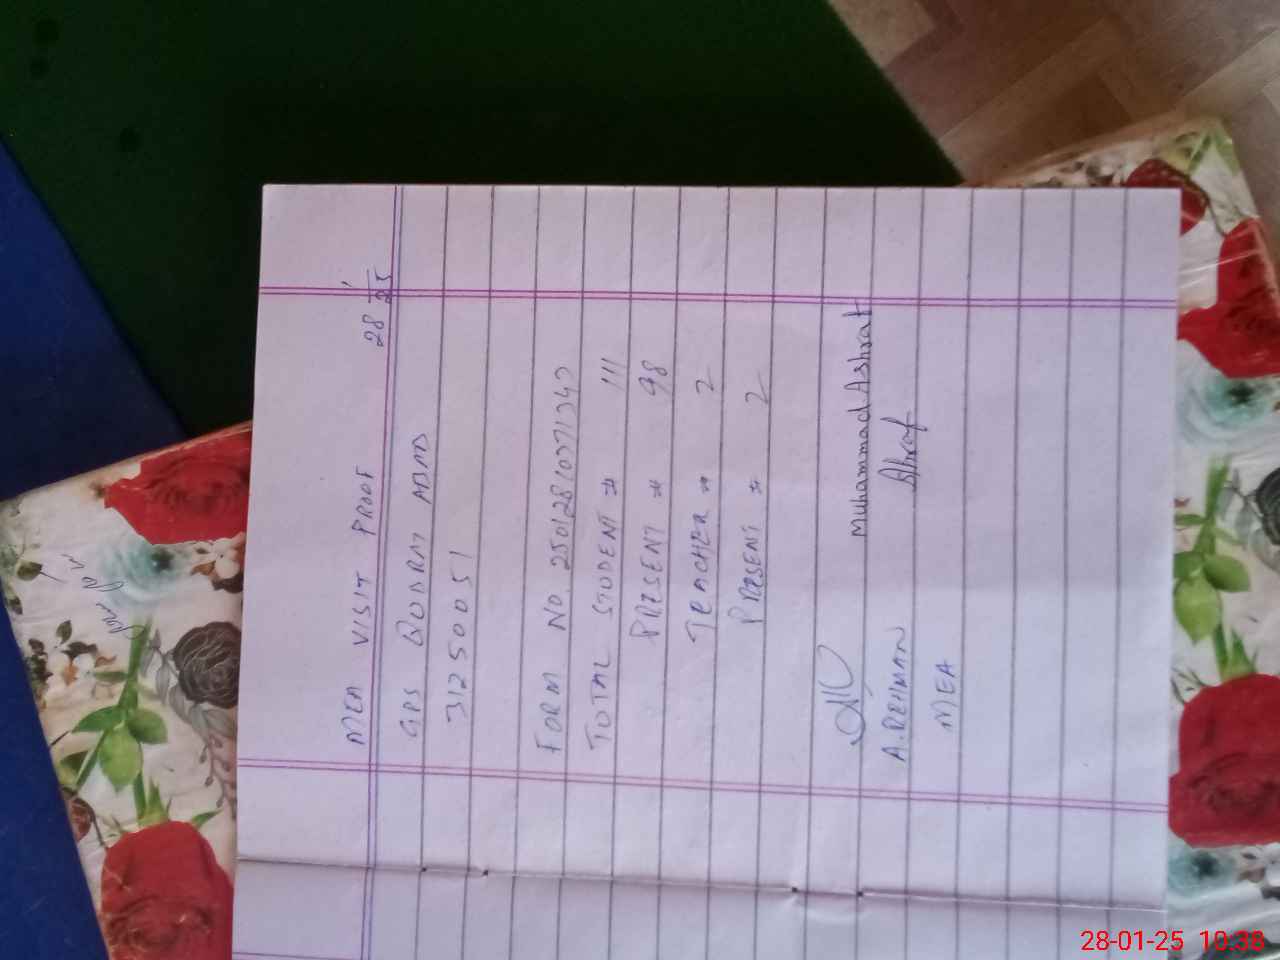 MEA VISIT PROOF 28/1/25
GPS QUDRAT ABAD
31250051
FORM NO. 2501281037134
TOTAL STUDENT # 111
PRESENT # 98
TEACHER # 2
PRESENT # 2
Muhammad Ashraf
A. REHMAN Ahraf
MEA
28-01-25 10:38